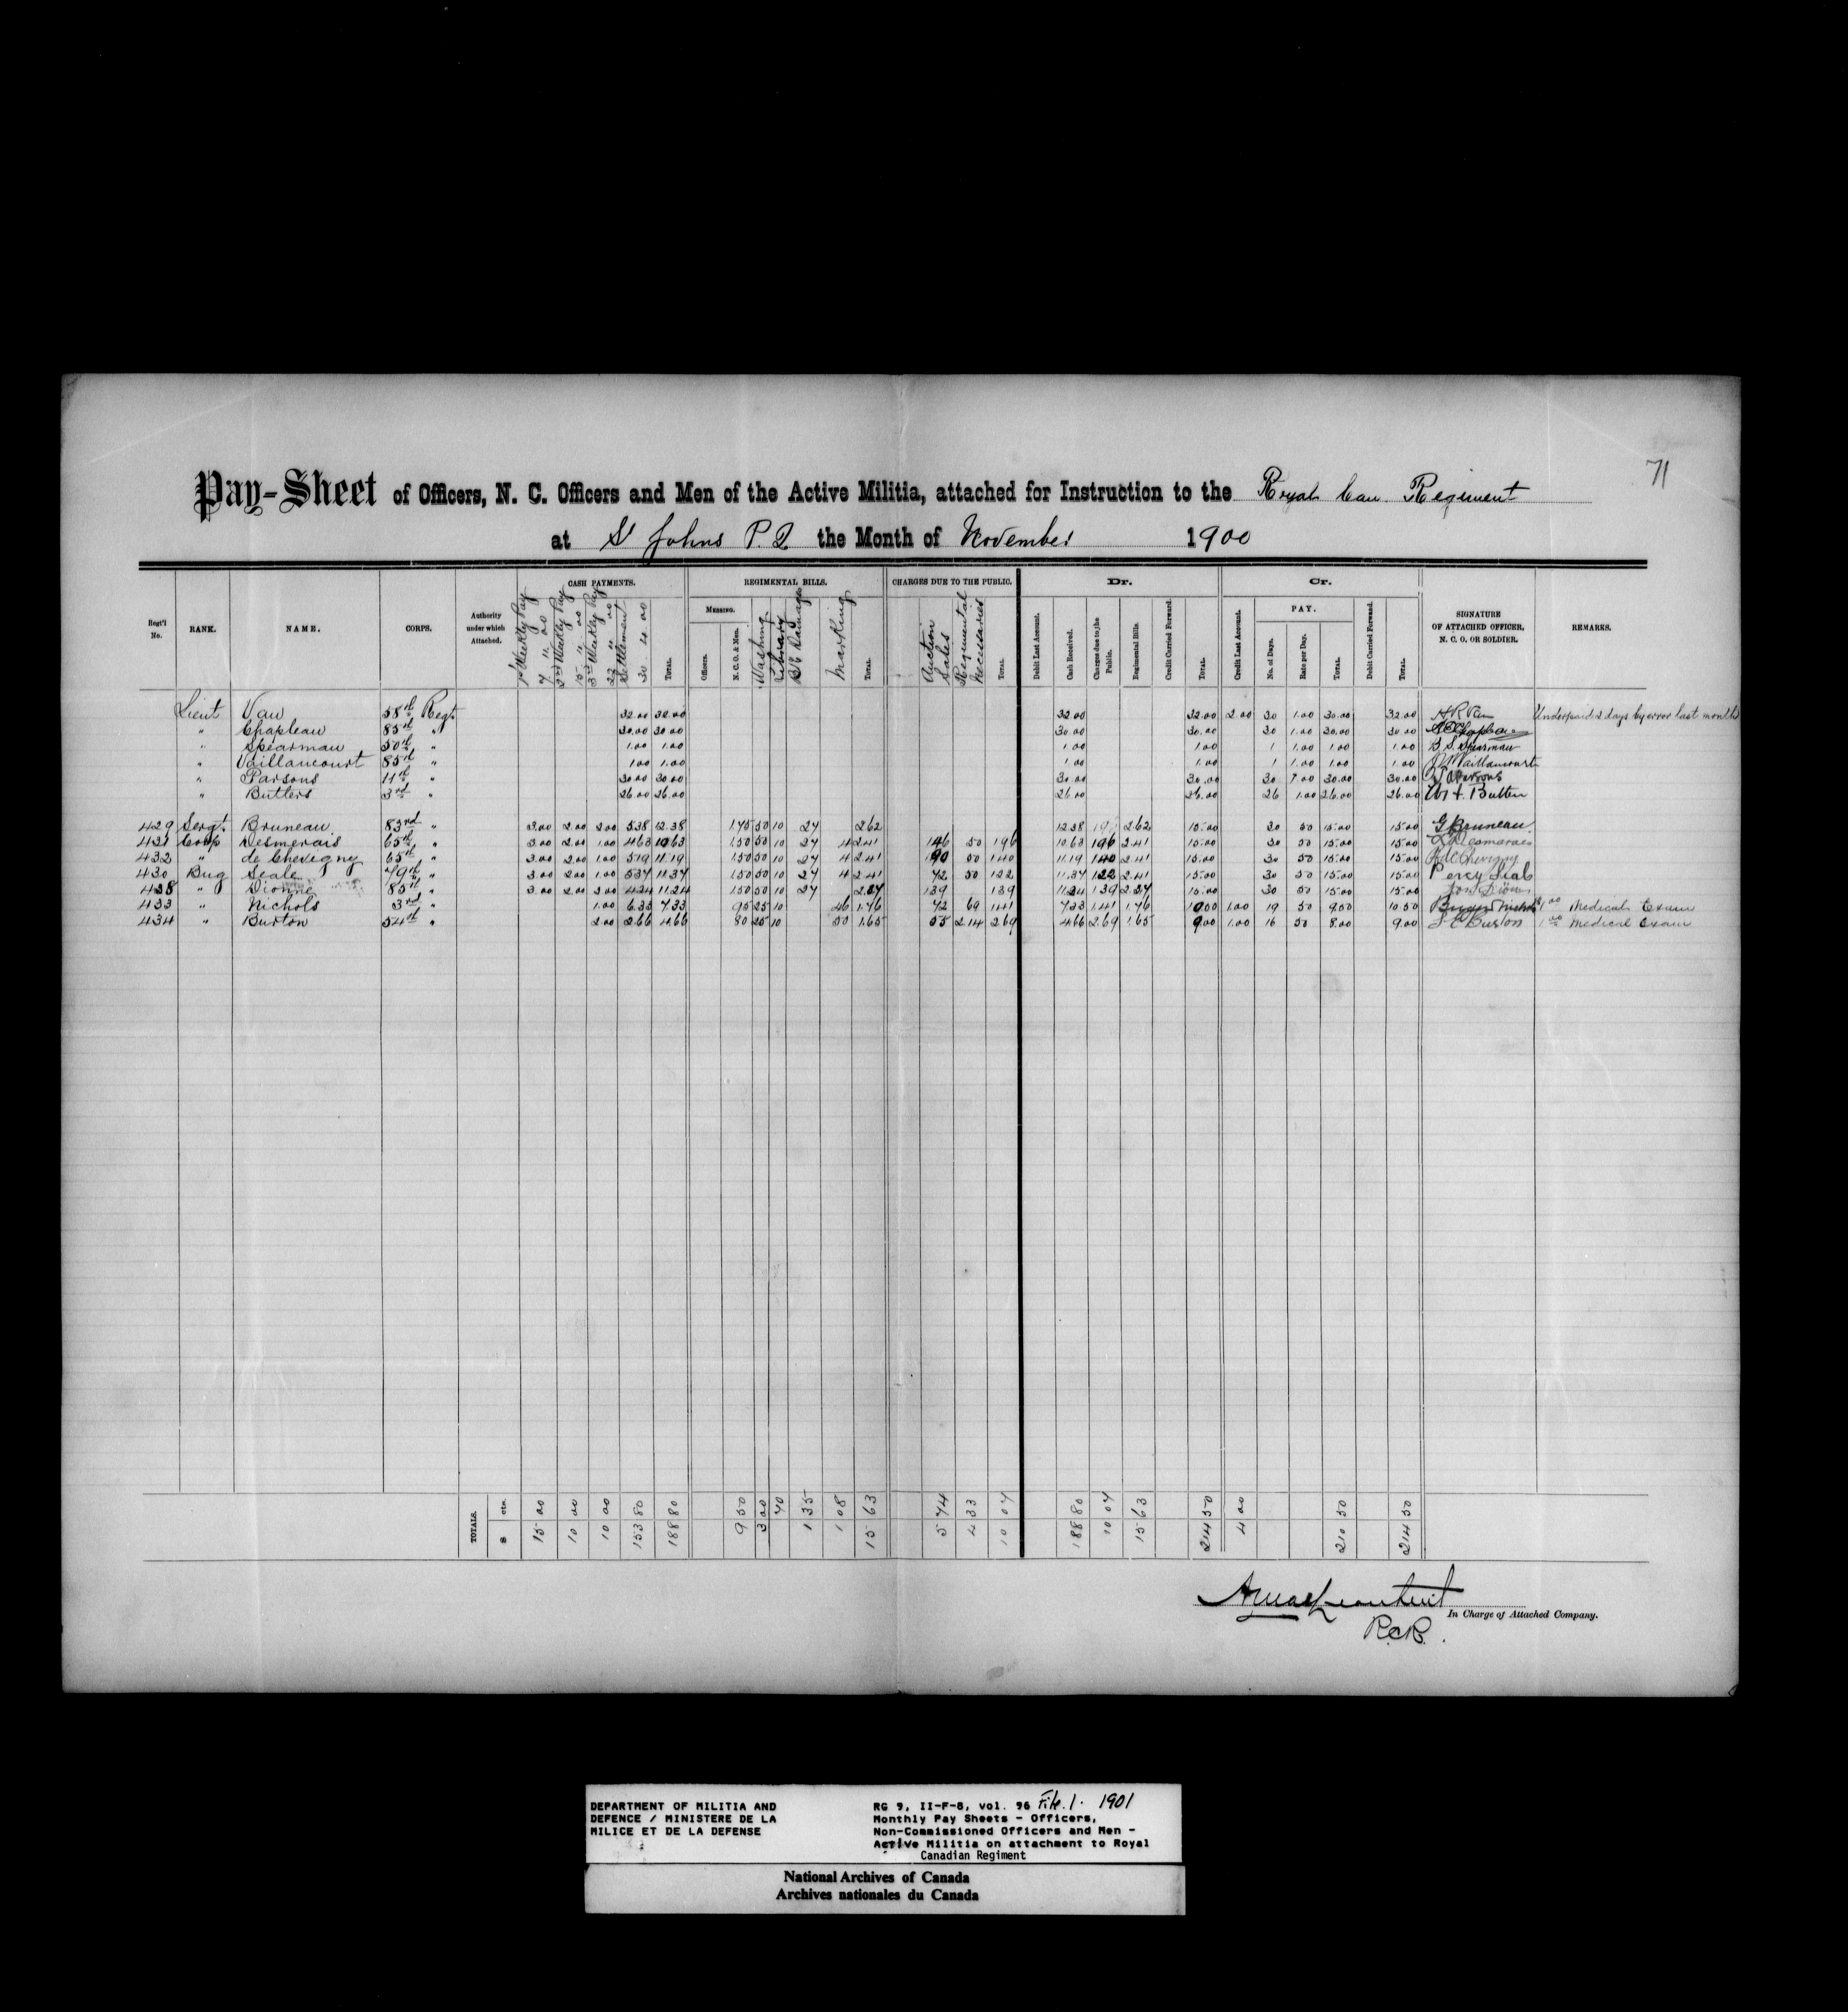 71
Pay-Sheet of Officers, N. C. Officers and Men of the Active Militia, attached for Instruction to the Royal Can Regiment
at St Johns P.Q the Month of November 1900
CASH PAYMENTS. REGIMENTAL BILLS. CHARGES DUE TO THE PUBLIC. Dr. Cr.
Reg'l No. RANK. NAME. CORPS. Authority under which Attached. 1st Weekly Pay 7 " 00 2nd Weekly Pay 15 " 00 3rd Weekly Pay 22 " 00 Settlement 30 4 00 TOTAL. MESSING. Officers. N. C. O. & Men. Washing Library B/k Damages Marking TOTAL. Auction Sales Regimental Necessaries TOTAL. Debit Last Account. Cash Received. Charges due to the Public. Regimental Bills. Credit Carried Forward. TOTAL. Credit Last Account. PAY. No. of Days. Rate per Day. TOTAL. Debit Carried Forward. TOTAL. SIGNATURE OF ATTACHED OFFICER, N. C. O. OR SOLDIER. REMARKS.
Lieut Vau 58th Regt 32.00 32.00 32.00 32.00 2.00 30 1.00 30.00 32.00 H R Vau Underpaid 2 days by error last month
" Chapleau 85th " 30.00 30.00 30.00 30.00 30 1.00 30.00 30.00 Chapleau
" Spearman 50th " 1.00 1.00 1.00 1.00 1 1.00 1.00 1.00 B. S. Spearman
" Vaillancourt 85th " 1.00 1.00 1.00 1.00 1 1.00 1.00 1.00 Vaillancourt
" Parsons 11th " 30.00 30.00 30.00 30.00 30 1.00 30.00 30.00 Parsons
" Butters 3rd " 26.00 26.00 26.00 26.00 26 1.00 26.00 26.00 Butters
429 Sergt Bruneau 83rd " 3.00 2.00 2.00 5.38 12.38 1.75 50 10 27 2.62 12.38 2.62 15.00 30 50 15.00 15.00 G Bruneau
431 Corp Desmerais 65th " 3.00 2.00 1.00 4.63 10.63 1.50 50 10 27 4 2.41 1.46 50 1.96 10.63 1.96 2.41 15.00 30 50 15.00 15.00 Desmarais
432 " de Chevigny 65th " 3.00 2.00 1.00 5.19 11.19 1.50 50 10 27 4 2.41 90 50 1.40 11.19 1.40 2.41 15.00 30 50 15.00 15.00 deChevigny
430 Bug Seale 79th " 3.00 2.00 1.00 5.37 11.37 1.50 50 10 27 4 2.41 72 50 1.22 11.37 1.22 2.41 15.00 30 50 15.00 15.00 Percy Seale
428 " Dionne 85th " 3.00 2.00 2.00 4.24 11.24 1.50 50 10 27 2.37 1.39 1.39 11.24 1.39 2.37 15.00 30 50 15.00 15.00 Jos Dionne
433 " Nichols 3rd " 1.00 6.33 7.33 95 25 10 46 1.76 72 69 1.41 7.33 1.41 1.76 10.50 1.00 19 50 9.50 10.50 Nichols 1.00 Medical Exam
434 " Burton 54th " 2.00 2.66 4.66 80 25 10 50 1.65 55 2.14 2.69 4.66 2.69 1.65 9.00 1.00 16 50 8.00 9.00 Burton 1.00 Medical Exam
TOTALS. $ cts. 15 00 10 00 10 00 153 80 188 80 9 50 3 00 70 1 35 1 08 15 63 5 74 4 33 10 07 188 80 10 07 15 63 214 50 4 00 210 50 214 50
In Charge of Attached Company.
R.C.R.
DEPARTMENT OF MILITIA AND
DEFENCE / MINISTERE DE LA
MILICE ET DE LA DEFENSE
RG 9, II-F-8, vol. 96 File.1. 1901
Monthly Pay Sheets - Officers,
Non-Commissioned Officers and Men -
Active Militia on attachment to Royal
Canadian Regiment
National Archives of Canada
Archives nationales du Canada